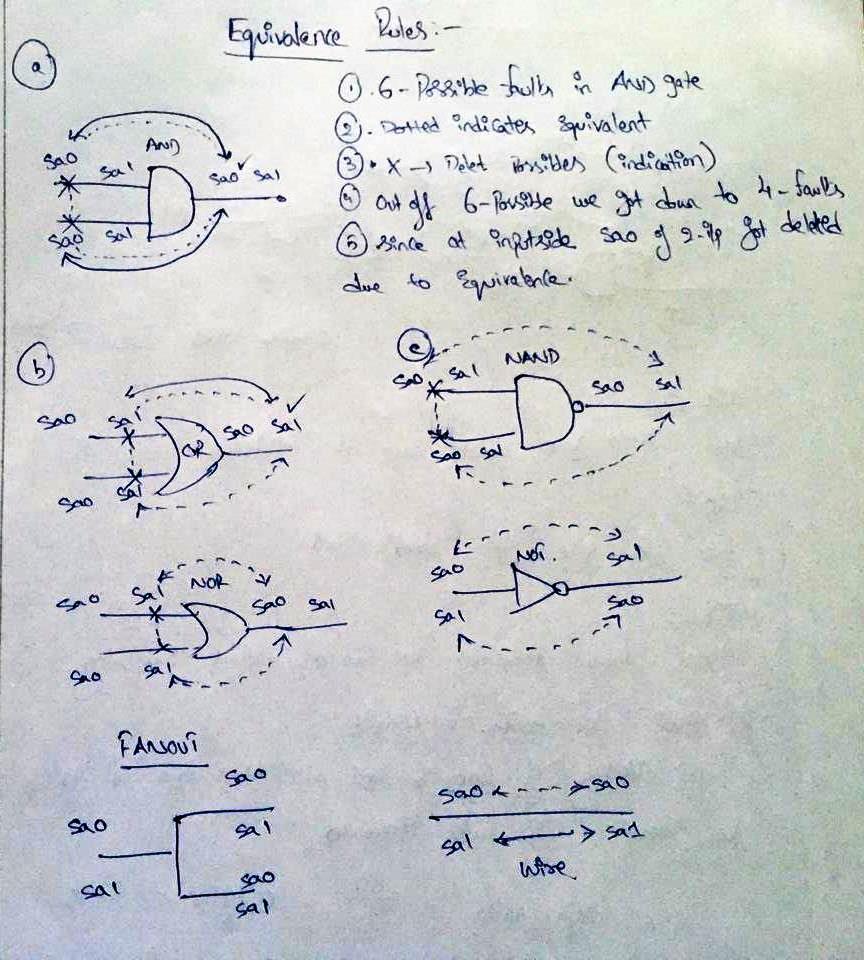 Equivalence Rules:-
a
① . 6 - Possible faults in AND gate
② . Dotted indicates Equivalent
③ • X → Delet Possibles (indication)
④ Out off 6-Possible we got down to 4-faults
⑤ Since at inputside sa0 of 2-i/p got deleted
due to Equivalence.
AND
sa0 sa1 sa0 ✓ sa1
sa0 sa1
b
sa0 sa1 sa0 sa1 ✓
OR
sa0 sa1
c
NAND
sa0 sa1 sa0 sa1
sa0 sa1
NOR
sa0 sa1 sa0 sa1
sa0 sa1
NOT.
sa0 sa1
sa1 sa0
FANOUT
sa0
sa0 sa1
sa1 sa0
sa1
sa0 <---> sa0
sa1 <—> sa1
Wire